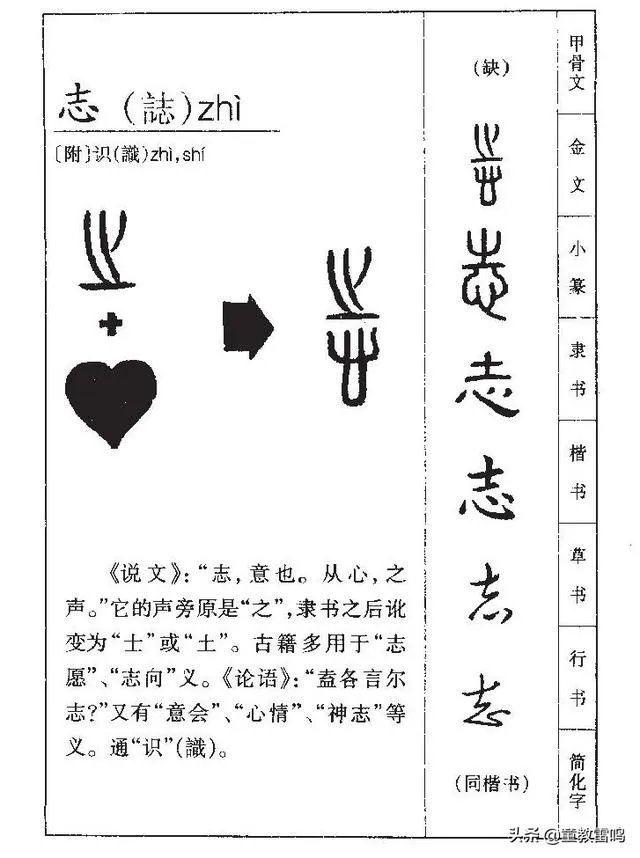 志（誌）zhì
〔附〕识（識）zhì, shí
《说文》：“志，意也。从心，之
声。”它的声旁原是“之”，隶书之后讹
变为“士”或“土”。古籍多用于“志
愿”、“志向”义。《论语》：“盍各言尔
志？”又有“意会”、“心情”、“神志”等
义。通“识”（識）。
（缺）
志
志
志
志
志
志
（同楷书）
甲骨文
金文
小篆
隶书
楷书
草书
行书
简化字
头条 @董教雷鸣